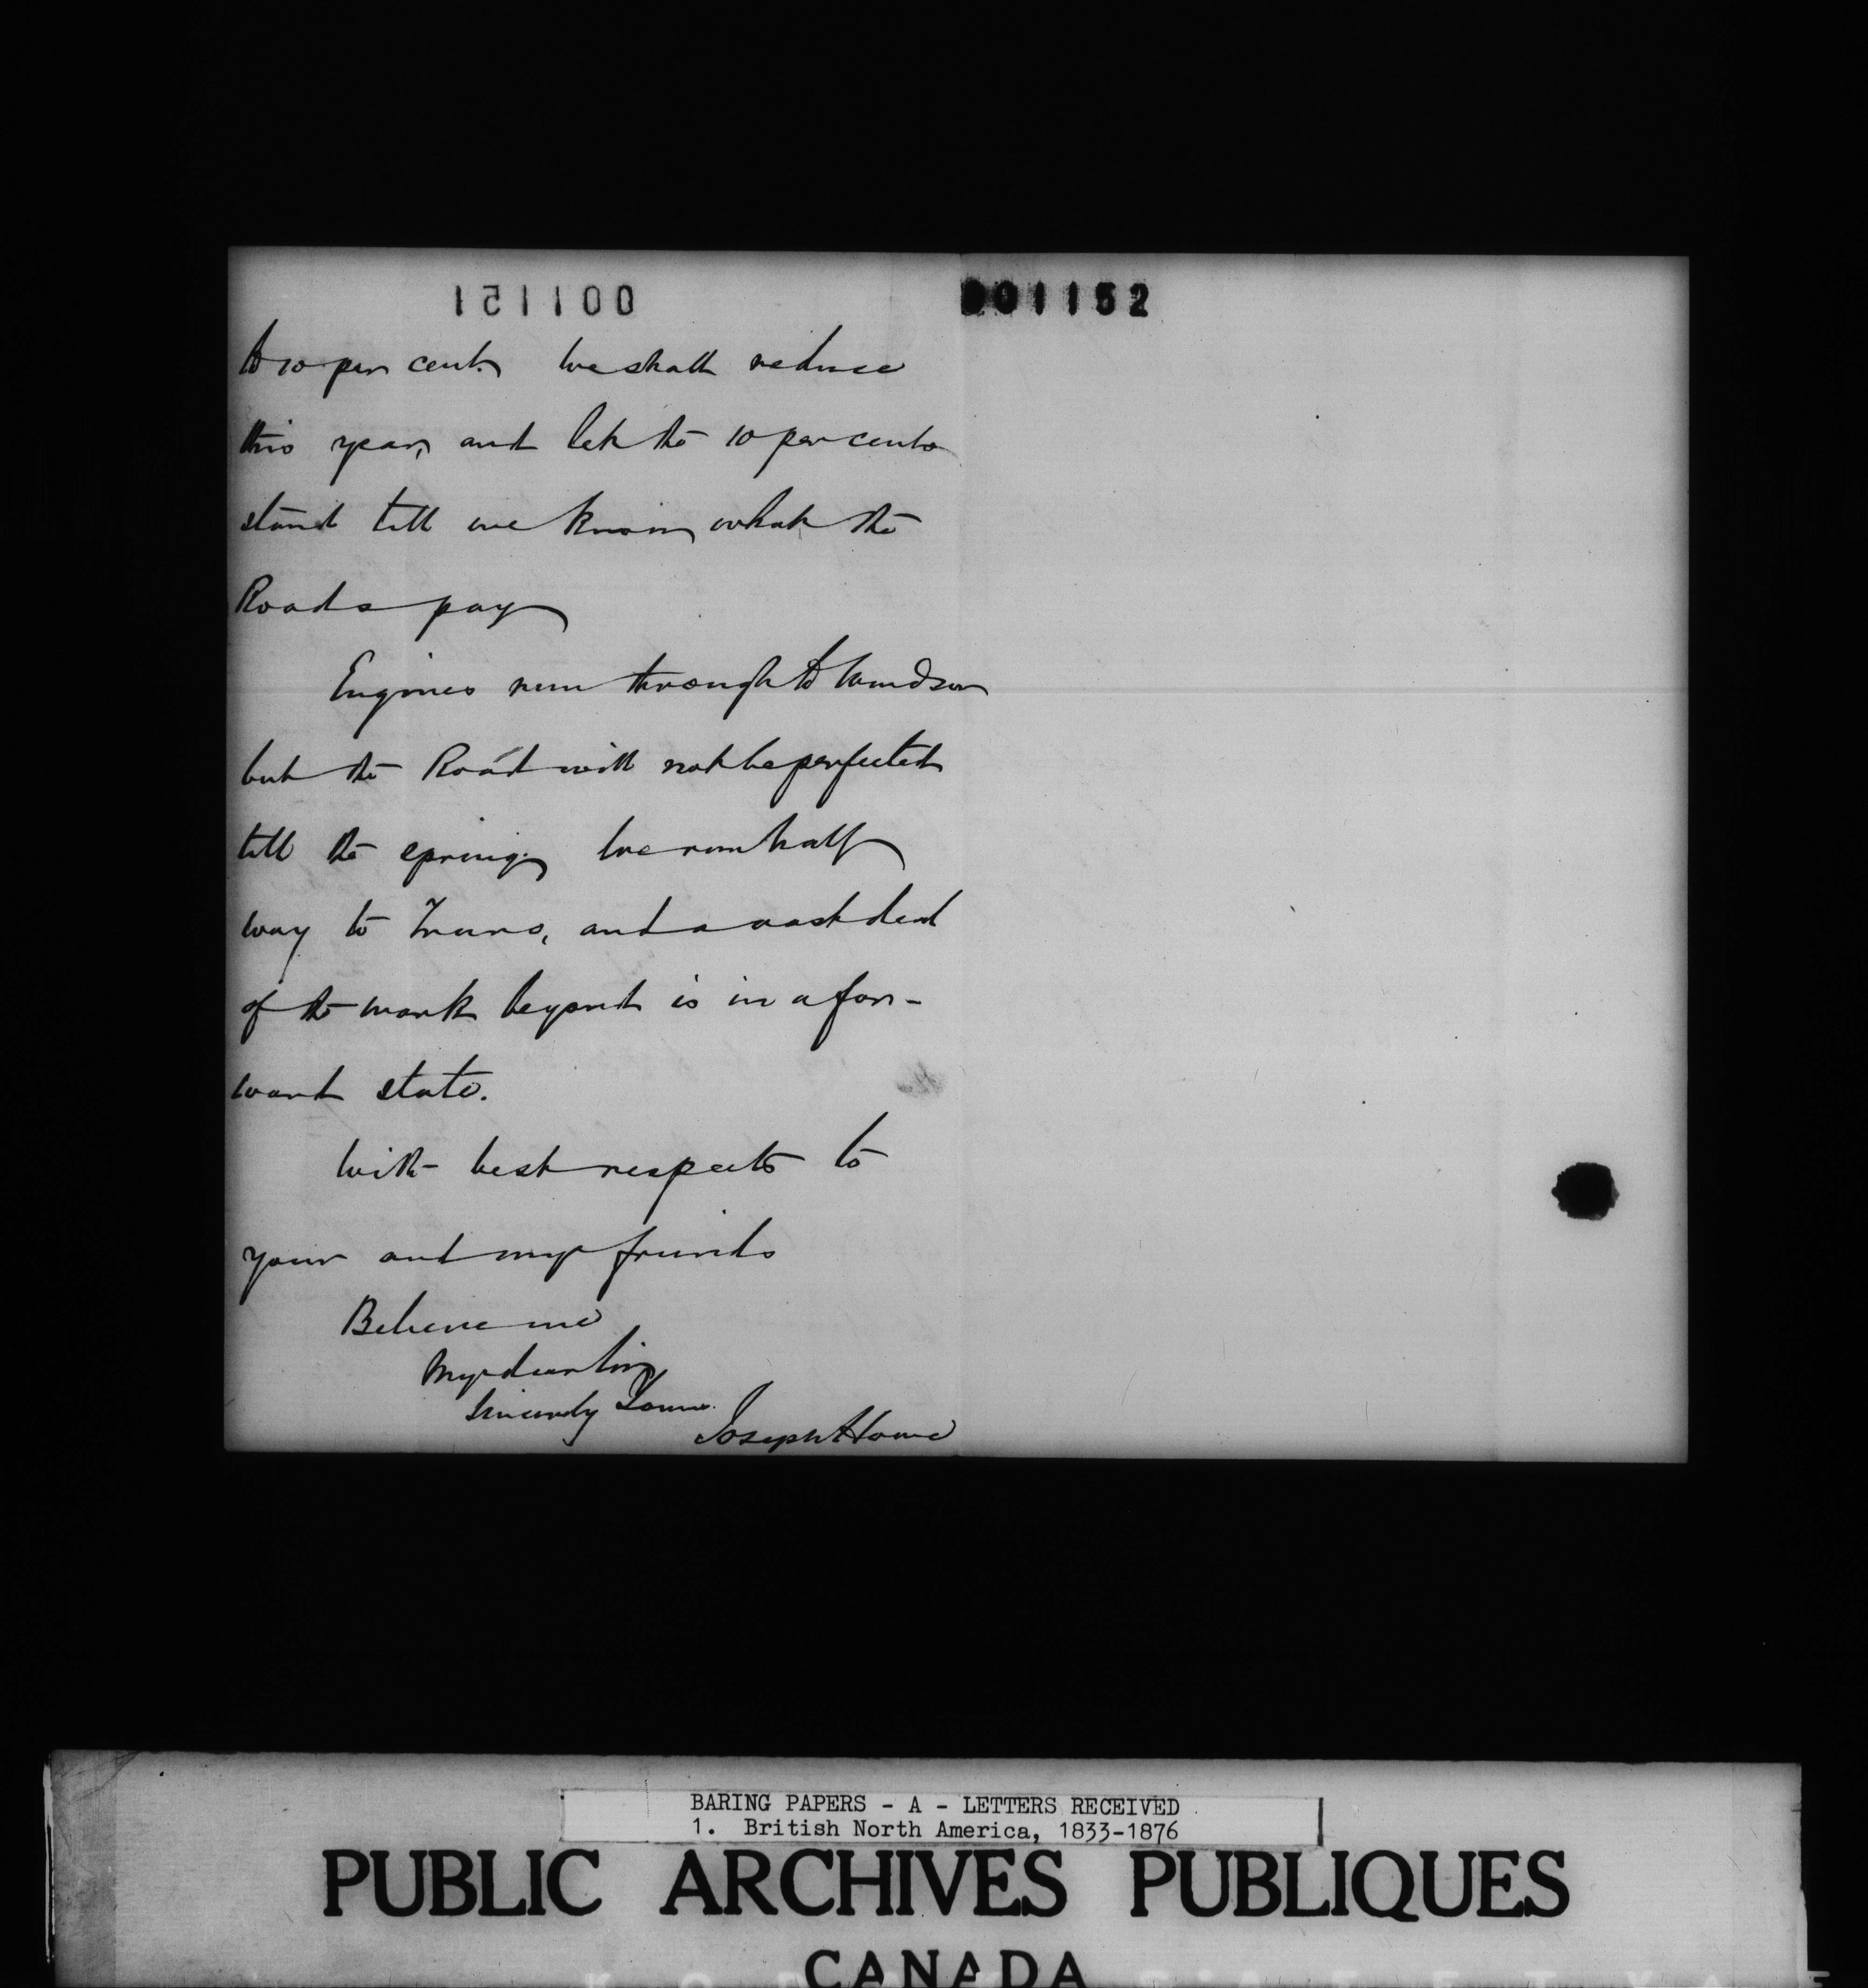 001151
001152
to 10 per cent. We shall reduce
this year, and let the 10 per cents
stand till we know what the
Roads pay
Engines run through to Windsor
but the Road will not be perfected
till the spring. We run half
way to Truro, and a vast deal
of the work beyond is in a for-
ward state.
With best respects to
your and my friends
Believe me
My dear Sir
Sincerely Yours.
Joseph Howe
BARING PAPERS - A - LETTERS RECEIVED
1. British North America, 1833-1876
PUBLIC ARCHIVES PUBLIQUES
CANADA